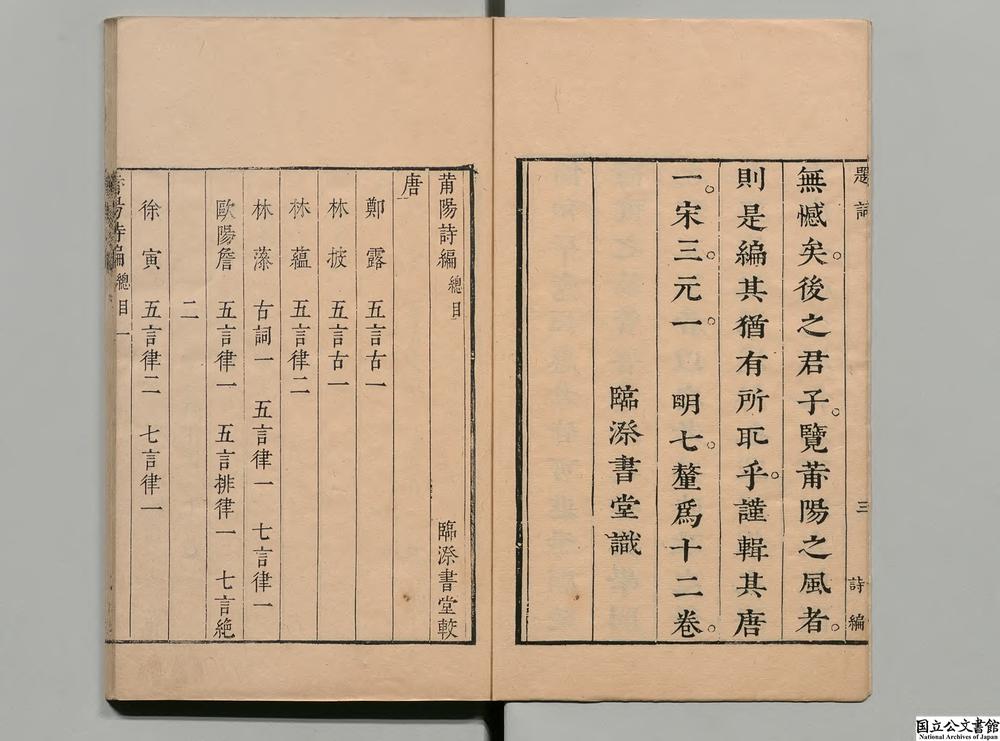 題詞 三 詩編
無憾矣。後之君子。覽莆陽之風者。
則是編其猶有所取乎。謹輯其唐
一。宋三。元一。明七。釐爲十二卷。
臨漈書堂識
莆陽詩編總目 臨漈書堂較
唐
鄭露 五言古一
林披 五言古一
林蘊 五言律二
林藻 古詞一 五言律一 七言律一
歐陽詹 五言律一 五言排律一 七言絶
二
徐寅 五言律二 七言律一
莆陽詩編 總目 一
国立公文書館
National Archives of Japan